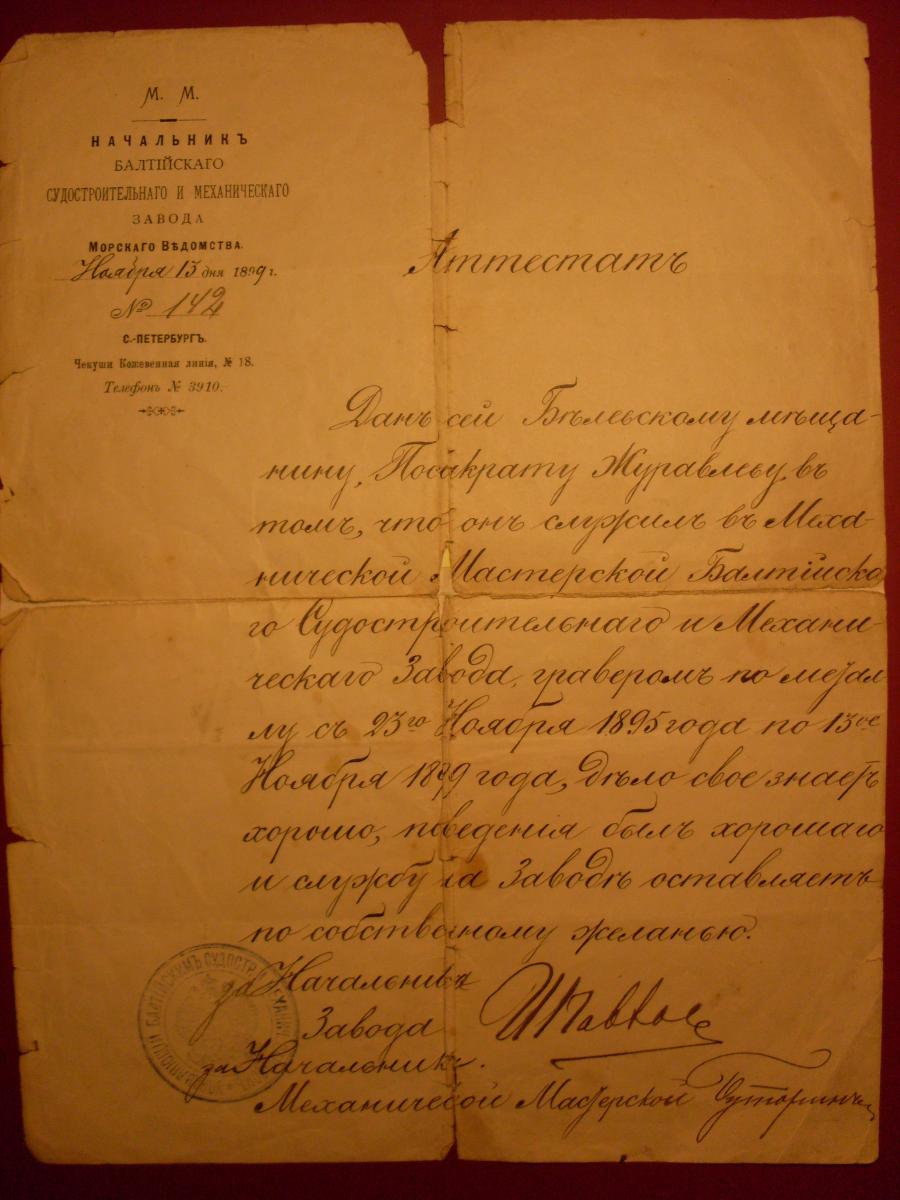 М. М.
НАЧАЛЬНИКЪ
БАЛТІЙСКАГО
СУДОСТРОИТЕЛЬНАГО И МЕХАНИЧЕСКАГО
ЗАВОДА
МОРСКАГО ВѢДОМСТВА.
Ноября 13 дня 1899 г.
№ 142
С.-ПЕТЕРБУРГЪ.
Чекуши Кожевенная линія, № 18.
Телефонъ № 3910.
Аттестатъ
Данъ сей Бѣлевскому мѣща-
нину, Журавлеву, въ
томъ, что онъ служилъ въ Меха-
нической Мастерской Балтійска
го Судостроительнаго и Механи-
ческаго Завода, граверомъ по метал
лу съ 23го Ноября 1895 года по 13ое
Ноября 1899 года, дѣло свое знаетъ
хорошо, поведения былъ хорошаго
и службу на Заводѣ оставляетъ
по собственному желанью.
за Начальника
Завода
за Начальника
Механической Мастерской